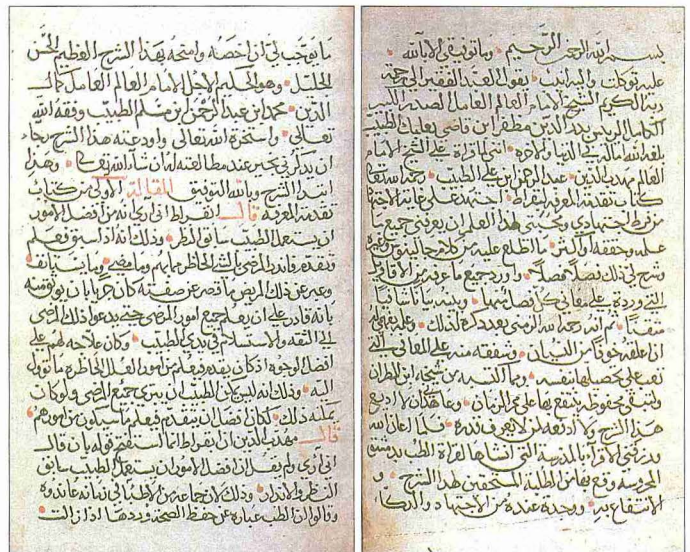 بسم الله الرحمن الرحيم وما توفيقي الا بالله
عليه توكلت واليه انيب يقول العبد الفقير الى رحمة
ربه الكريم الشيخ الامام العالم العامل الصدر الكبير
الكامل الرييس بدر الدين مظفر ابن قاضي بعلبك الطبيب
بلغه الله اماله في الدنيا والاخرة انني لما قراة على الشيخ الامام
العالم مهذب الدين عبد الرحيم ابن على الطبيب رحمه الله تعالى
كتاب تقدمة المعرفة لبقراط اجتهد على غاية الاجتهاد
من فرط اجتهادي ومحبتي هذا العلم ان يعرفني جميع ما
علمه وحققه واكثر ما اطلع عليه من كلام جالينوس وغيره
وشرح لي ذلك فصلا فصلا واورد جميع ما عرفه من الاقاويل
التي وردة على معاني كل فصل منها وبينه بيانا شافيا
ثم انه رحمه الله الزمني بعد ذكره لذلك
ان اعلقه خوفا من النسيان وشفقه منه على المعاني التي
تعب على تحصيلها بنفسه وبما اكتسبه من شيخه ابن المطران
ولتبقى محفوظة ينتفع بها على ممر الزمان لا اذيع
هذا الشرح ولا ادفعه لمن لا يعرف قدره فلما اعان الله
ورزقني الاقراء بالمدرسة التي انشاها لقراة الطب بدمشق
المحروسه وقع بها من الطلبة المستحقين لهذا الشرح و
الانتفاع به ووجدة عنده من الاجتهاد والذكاء
ما يوجب لي ان اخصه وامنحه بهذا الشرح العظيم الحسن
الجليل وهو الحكيم الاجل الامام العالم العامل كمال
الدين محمد ابن عبد الرحمن ابن مسلم الطبيب وفقه الله
تعالى واستخرة الله تعالى واودعته هذا الشرح رجاء
ان يذكرني بخير عند مطالعته ان شاء الله تعالى وهذا
ابتدا الشرح وبالله التوفيق المقالة الاولى من كتاب
تقدمة المعرفة قال ابقراط اني ارى انه من افضل الامور
ان يستعمل الطبيب سابق النظر وذلك انه اذا سبق فعلم
وتقدم فانذر المرضى بالشي الحاظر مما بهم وما مضى وما يستانف
وعبر عن ذلك المريض ما قصر عن صفته كان حريا بان يوثق منه
بانه قادر على ان يعلم جميع امور المرضى حتى يدعوا ذلك المرضى
الى الثقه والاستسلام في يدي الطبيب وكان علاجه لهم على
افضل الوجوه اذ كان يتقدم فيعلم من امور العلل الحاظرة ما تؤول
اليه وذلك انه ليس يمكن الطبيب ان يبري جميع المرضى ولو كان
يمكنه ذلك لكان افضل ان يتقدم فيعلم ما سيكون من امورهم
قال مهذب الدين ان ابقراط انما استفتح قوله بان قال
اني ارى ولم يقل ان افضل الامور ان يستعمل الطبيب سابق
النظر والانذار وذلك لان جماعة من الاطبا في زمانه عاندوه
وقالوا ان الطب عبارة عن حفظ الصحة وردها اذا زالت